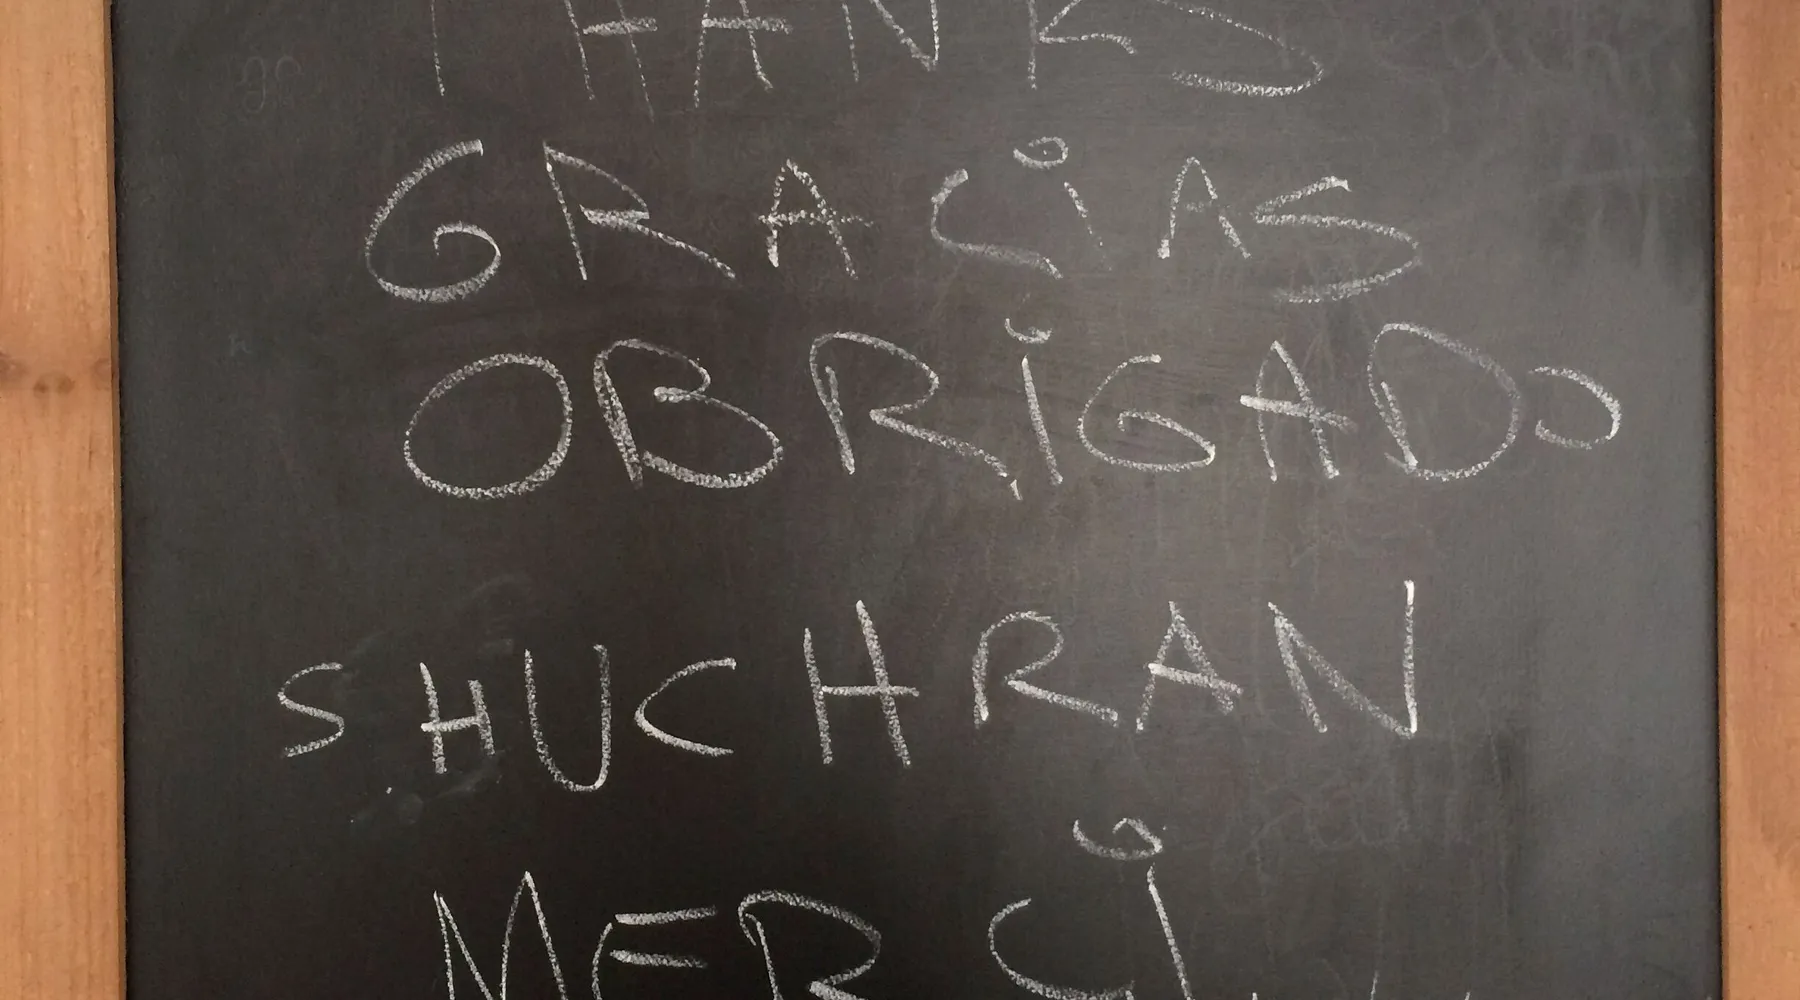 THANKS
GRACiAS
OBRiGADO
SHUCHRAN
MERCi